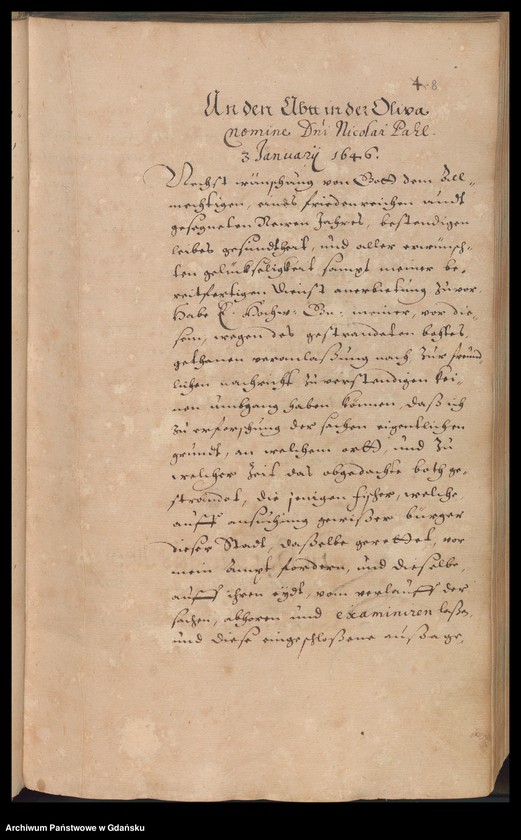 4 8
An den Abtt in der Oliva
nomine Dni Nicolai Pahl.
3 January 1646.
Nechst wünschung von Gott dem All-
mechtigen, eines friedenreichen undt
gesegneten Newen Jahres, bestendigen
leibes gesundtheit, und aller erwünsch-
ten glückseligkeit sampt meiner be-
reitfertigen dienst anerbietung zuvor.
Habe E. Hochw: meiner, vor die-
sem, wegen des gestrandeten bohtes,
gethanen veranlaßung nach zur freund-
lichen nachricht zu verstendigen kei-
nen umbgang haben können, daß ich
zu erforschung der sachen eigentlichen
grundt, an welchem ortt, und zu
welcher Zeit das obgedachte both ge-
strandet, die jenigen fischer, welche
auff ansuchung gewißer bürger
dieser Stadt, daßelbe gerettet, vor
mein Ampt fordern, und dieselbe,
auff ihren eydt, vom verlauff der
sachen, abhören und examiniren laßen,
und diese eingeschloßene außage,
Archiwum Państwowe w Gdańsku